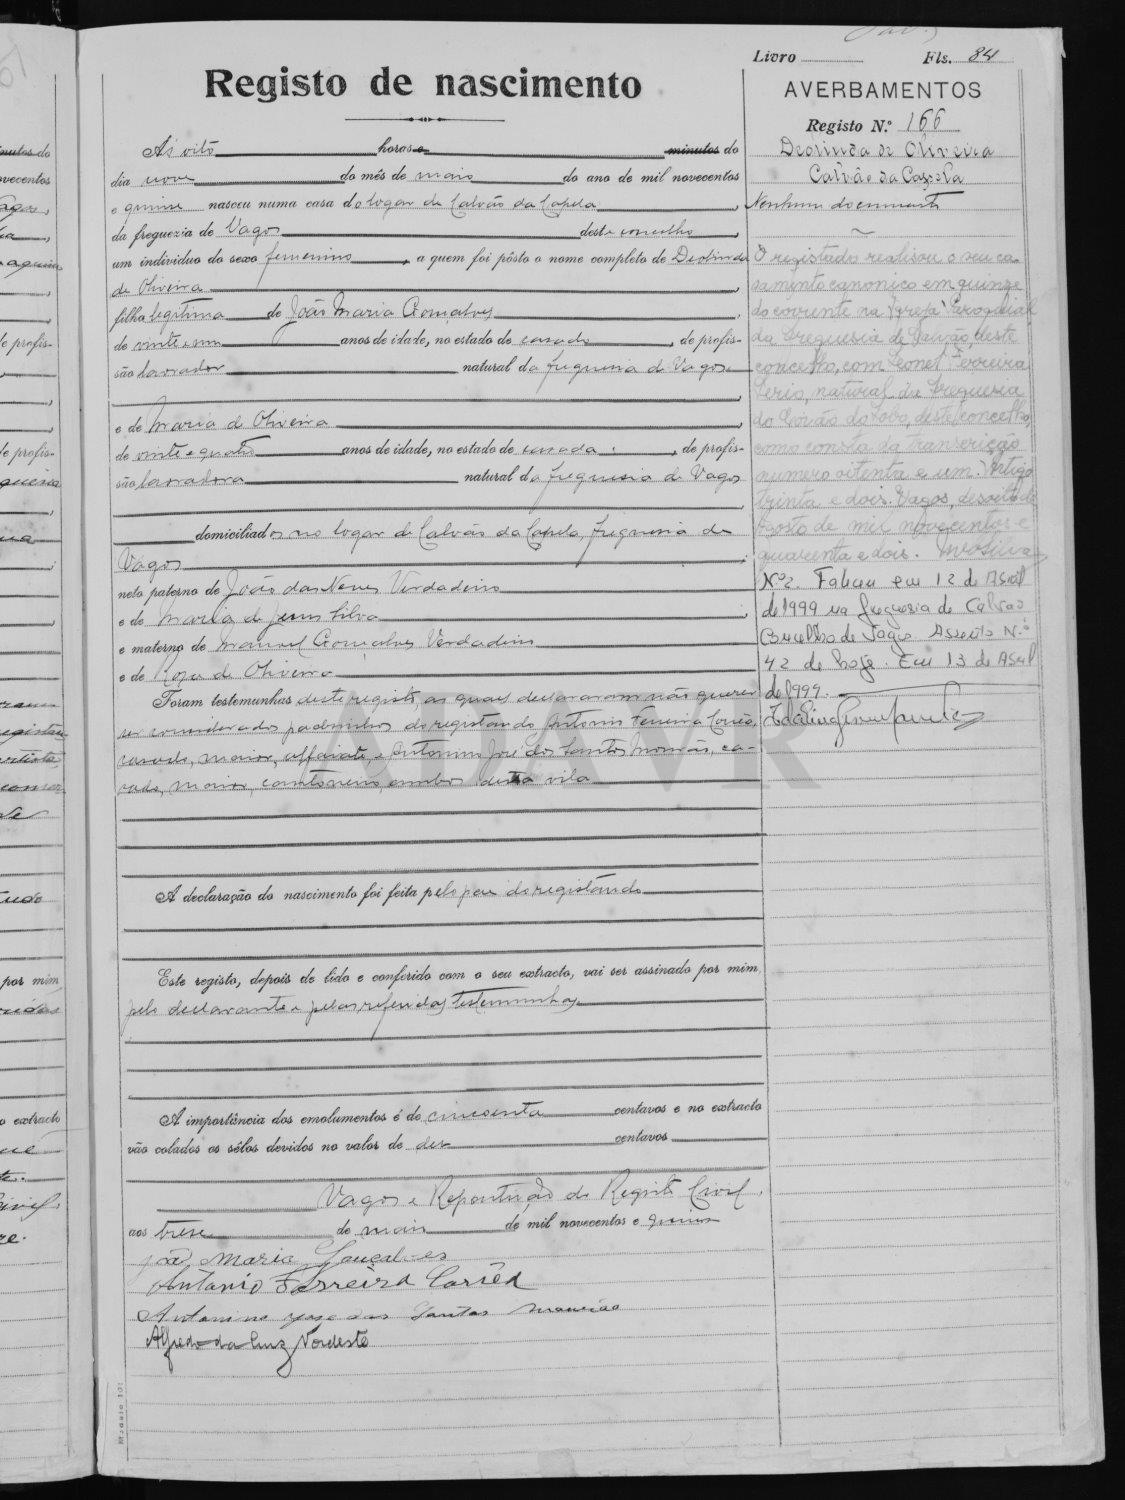 Livro Fls. 84
Registo de nascimento
A's oito horas e minutos do
dia nove do mês de maio do ano de mil novecentos
e quinze nasceu numa casa do logar de Calvão da Capela,
da freguezia de Vagos deste concelho,
um individuo do sexo femenino, a quem foi pôsto o nome completo de Deolinda
de Oliveira,
filha legitima de João Maria Gonçalves,
de vinte e um anos de idade, no estado de casado, de profis-
são lavrador natural da freguesia de Vagos
e de Maria d' Oliveira,
de vinte e quatro anos de idade, no estado de casada, de profis-
são lavradora natural da freguesia de Vagos
domiciliados no logar de Calvão da Capela, freguesia de
Vagos;
neta paterno de João das Neves Verdadeiro
e de Maria de Jesus Silva,
e materno de Manuel Gonçalves Verdadeiro
e de Rosa de Oliveira
Foram testemunhas deste registo, as quaes declararam não querer
ser considerados padrinhos do registando Antonio Ferreira Corrêa,
casado, maior, alfaiate, e Antonino José dos Santos Mourão, ca-
sado, maior, cantoneiro, ambos desta vila
A declaração do nascimento foi feita pelo pae do registando
Este registo, depois de lido e conferido com o seu extracto, vai ser assinado por mim,
pelo declarante e pelas referidas testemunhas.
A importância dos emolumentos é de cincoenta centavos e no extracto
vão colados os sêlos devidos no valor de dez centavos
Vagos e Repartição do Registo Civil,
aos treze de maio de mil novecentos e quinze
João Maria Gonçalves
Antonio Ferreira Corrêa
Antonino Joze dos Santos Mourão
Alfredo da Cruz Nordeste
Modelo 101
AVERBAMENTOS
Registo N.º 166
Deolinda de Oliveira
Calvão da Capela
Nenhum documento
O registado realisou o seu ca-
samento canonico em quinze
do corrente na Igreja Paroquial
da freguesia de Calvão, deste
concelho, com Leonel Ferreira
natural da freguesia
do Covão do Lobo, deste concelho,
como consta da transcrição
numero oitenta e um. Artigo
trinta e dois. Vagos, desoito de
Agosto de mil novecentos e
quarenta e dois.
N.º 2. Faleceu em 12 de Abril
de 1999 na freguesia de Calvão
Concelho de Vagos. Assento N.º
42 de hoje. Em 13 de Abril
de 1999.
ADAVR